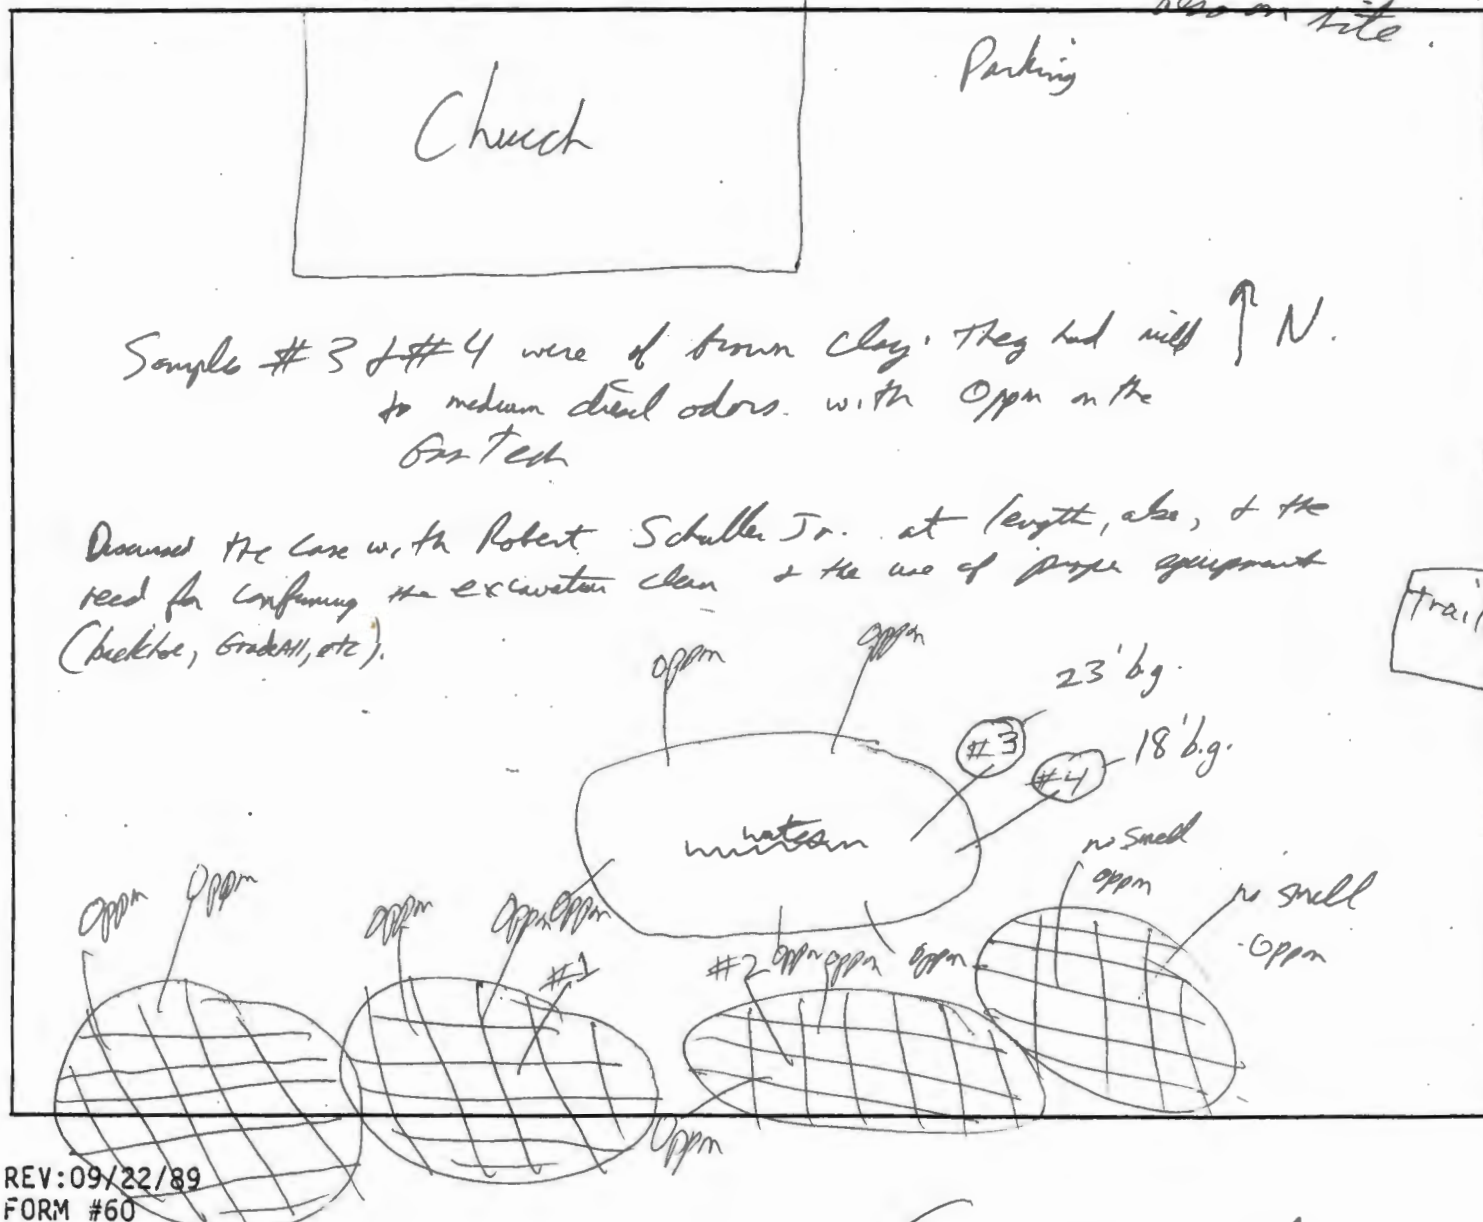 also on site.
Parking
Church
Samples #3 & #4 were of brown clay. They had mild
to medium diesel odors. with 0ppm on the
GasTech
↑ N.
Discussed the case with Robert Schuller Jr. at length, also, & the
need for confirming the excavation clean & the use of proper equipment
(backhoe, GradeAll, etc).
trail
0ppm
0ppm
23' b.g.
#3
18' b.g.
#4
water
no smell
0ppm
no smell
0ppm
0ppm
0ppm
0ppm
0ppm
0ppm
#1
#2
0ppm
0ppm
0ppm
0ppm
REV:09/22/89
FORM #60